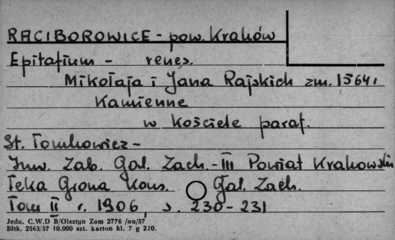 RACIBOROWICE - pow. Kraków
Epitafium - renes.
Mikołaja i Jana Rajskich zm. 1564 i
Kamienne
w Kościele paraf.
St. Tomkowicz -
Inw. Zab. Gal. Zach. - III Powiat Krakowski
Teka Grona Kons. Gal. Zach.
Tom II r. 1906 s. 230 - 231
Jedn. C.W.D B/Olsztyn Zam 2776 /on/57
Bltk. 2563/57 10.000 szt. karton kl. 7 g 220.